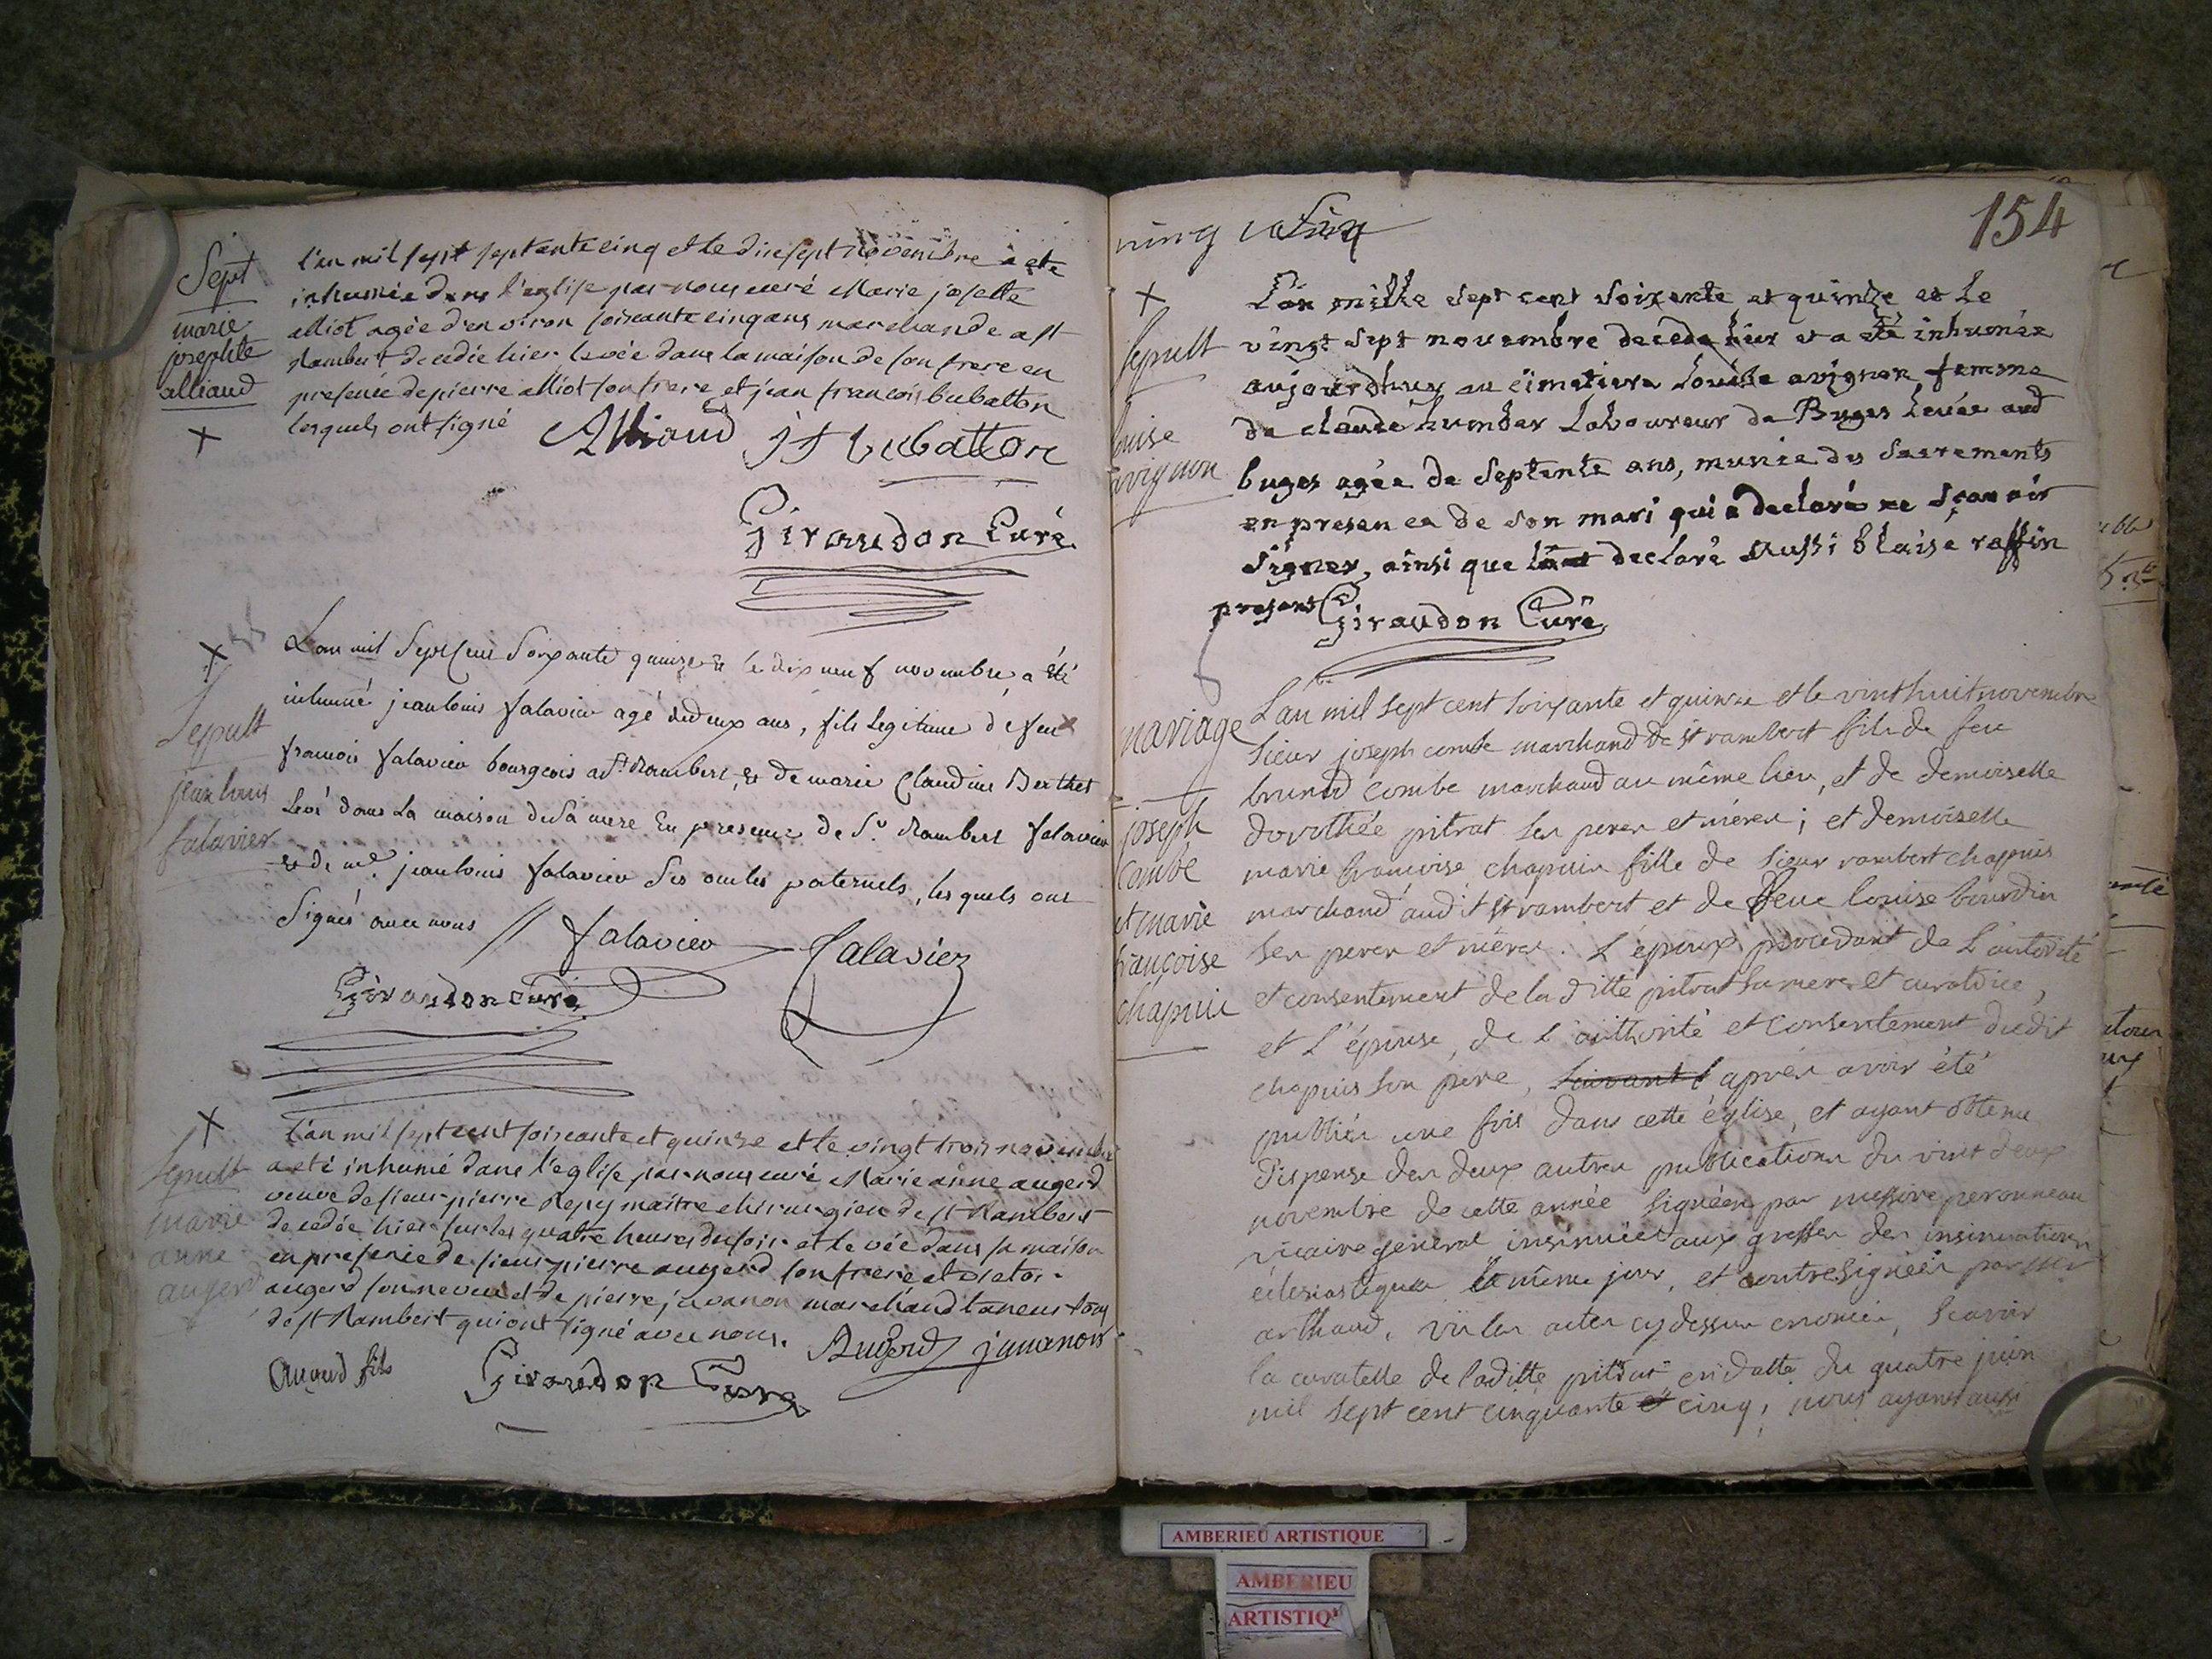 Sept
marie
josephte
alliaud
l'an mil sept septante cinq et le dixsept novembre a ete
inhumée dans l'eglise par nous curé Marie josette
alliot agée d'environ soixante cinq ans marchande a st
Rambert decedée hier levée dans la maison de son frere en
presence de pierre alliot son frere et jean francois bubatton
lesquels ont signé
Alliaud jf bubatton
Giraudon Curé
Sepult
jean louis
falavier
L'an mil Sept Cent Soixante quinze & le dix neuf novembre, a été
inhumé jean louis falavier agé de deux ans, fils legitime de feu
francois falavier bourgeois a St Rambert, & de marie Claudine Berthet
levé dans La maison de Sa mere En presence de Sr. Rambert falavier
& de me. jean louis falavier Ses oncles paternels, les quels ont
Signés avec nous
falavier falavier
Giraudon curé
Sepult
marie
anne
augerd
l'an mil sept cent soixante et quinze et le vingt trois novembre
a eté inhumé dans l'eglise par nous curé Marie anne augerd
veuve de sieur pierre Repy maitre chirurgien de st Rambert
decedée hier sur les quatre heures du soir et levée dans sa maison
en presence de sieur pierre augerd son frere et
augerd son neveu et de pierre javanon marchand taneur tous
de st Rambert qui ont signé avec nous.
Augerd javanon
Augerd fils Giraudon Curé
154
Sepult
louise
avignon
L'an mille Sept cent Soixente et quinze et Le
vingt Sept novembre decede hier et a eté inhumée
aujourdhuy au cimetiere Louise avignon femme
de claude humber Laboureur de Buges Levée aud
buges agée de Septente ans, munie des Sacrements
en presence de son mari qui a declaré ne sçavoir
Signer, ainsi que l'a declaré aussi blaise raffin
present Giraudon Curé
mariage
joseph
Combe
et marie
françoise
chapuis
L'an mil sept cent soixante et quinze et le vint huit novembre
sieur joseph combe marchand de st rambert fils de feu
brunod combe marchand au même lieu, et de demoiselle
dorothée pitrat ses peres et méres; et demoiselle
marie francoise chapuis fille de sieur rambert chapuis
marchand audit st rambert et de feue louise bourdin
ses peres et méres. L'époux procedant de L'autorité
et consentement de la ditte pitrat sa mere et curatrice,
et L'épouse, de l'authorité et consentement dudit
chapuis son père, suivant l après avoir été
publiés une fois dans cette église, et ayant obtenu
dispense des deux autres publications du vint deux
novembre de cette année signées par messire peronneau
vicaire general insinuées aux greffes des insinuations
éclesiastiques le même jour, et contresignées par sur
arthaud, vü les actes cy dessus enoncés, scavoir
la curatelle de laditte pitrat en datte du quatre juin
mil sept cent cinquante et cinq, nous ayant aussi
AMBERIEU ARTISTIQUE
AMBERIEU
ARTISTIQ